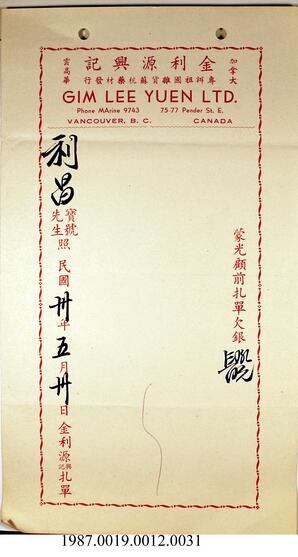 加拿大
金利源興記
雲高華
專辦祖國雜貨蘇杭藥材發行
GIM LEE YUEN LTD.
Phone MArine 9743 75-77 Pender St. E.
VANCOUVER, B. C. CANADA
蒙光顧前扎單欠銀
利昌
寶號
先生
照 民國卅年五月卅日金利源興記扎單
1987.0019.0012.0031